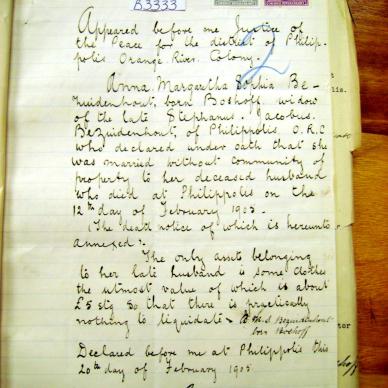 B3333
2
Appeared before me Justice of
the Peace for the district of Philip-
polis Orange River Colony.
Anna Margaretha Sophia Be-
zuidenhout, born Boshoff, widow
of the late Stephanus Jacobus
Bezuidenhout, of Philippolis. O.R.C
who declared under oath that she
was married without community of
property to her deceased husband
who died at Philippolis on the
12th day of February 1905.
(The death notice of which is hereunto
annexed).
The only assets belonging
to her late husband is some clothes
the utmost value of which is about
£5 stg. So that there is practically
nothing to liquidate. A.M.S. Bezuidenhout
born Boshoff
Declared before me at Philippolis this
20th day of February 1905